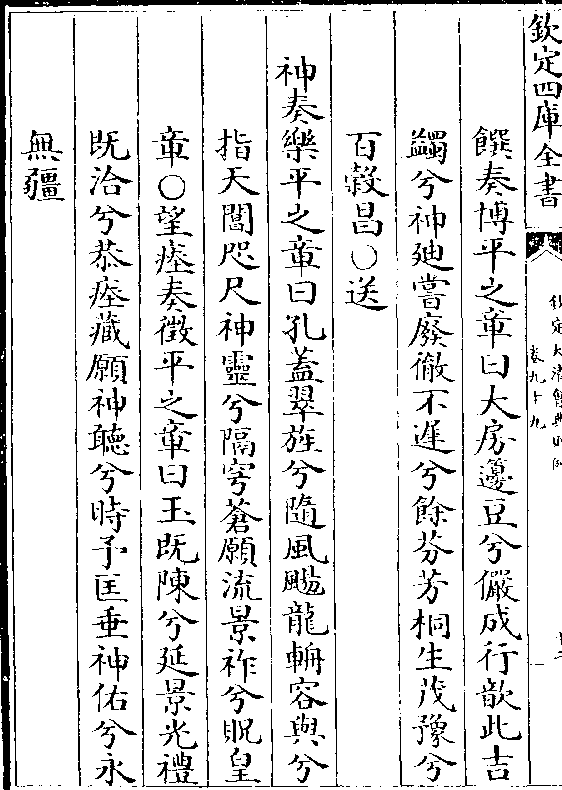 欽定四庫全書
欽定大清會典則例
卷九十九
饌奏博平之章曰大房籩豆兮儼成行歆此吉
蠲兮神廸嘗廢徹不遲兮餘芬芳桐生茂豫兮
百穀昌○送
神奏樂平之章曰孔蓋翠旌兮隨風颺龍輈容與兮
指天閶咫尺神靈兮隔穹蒼願流景祚兮貺皇
章○望瘞奏徵平之章曰玉既陳兮延景光禮
既洽兮恭瘞藏願神聽兮時予匡垂神佑兮永
無疆